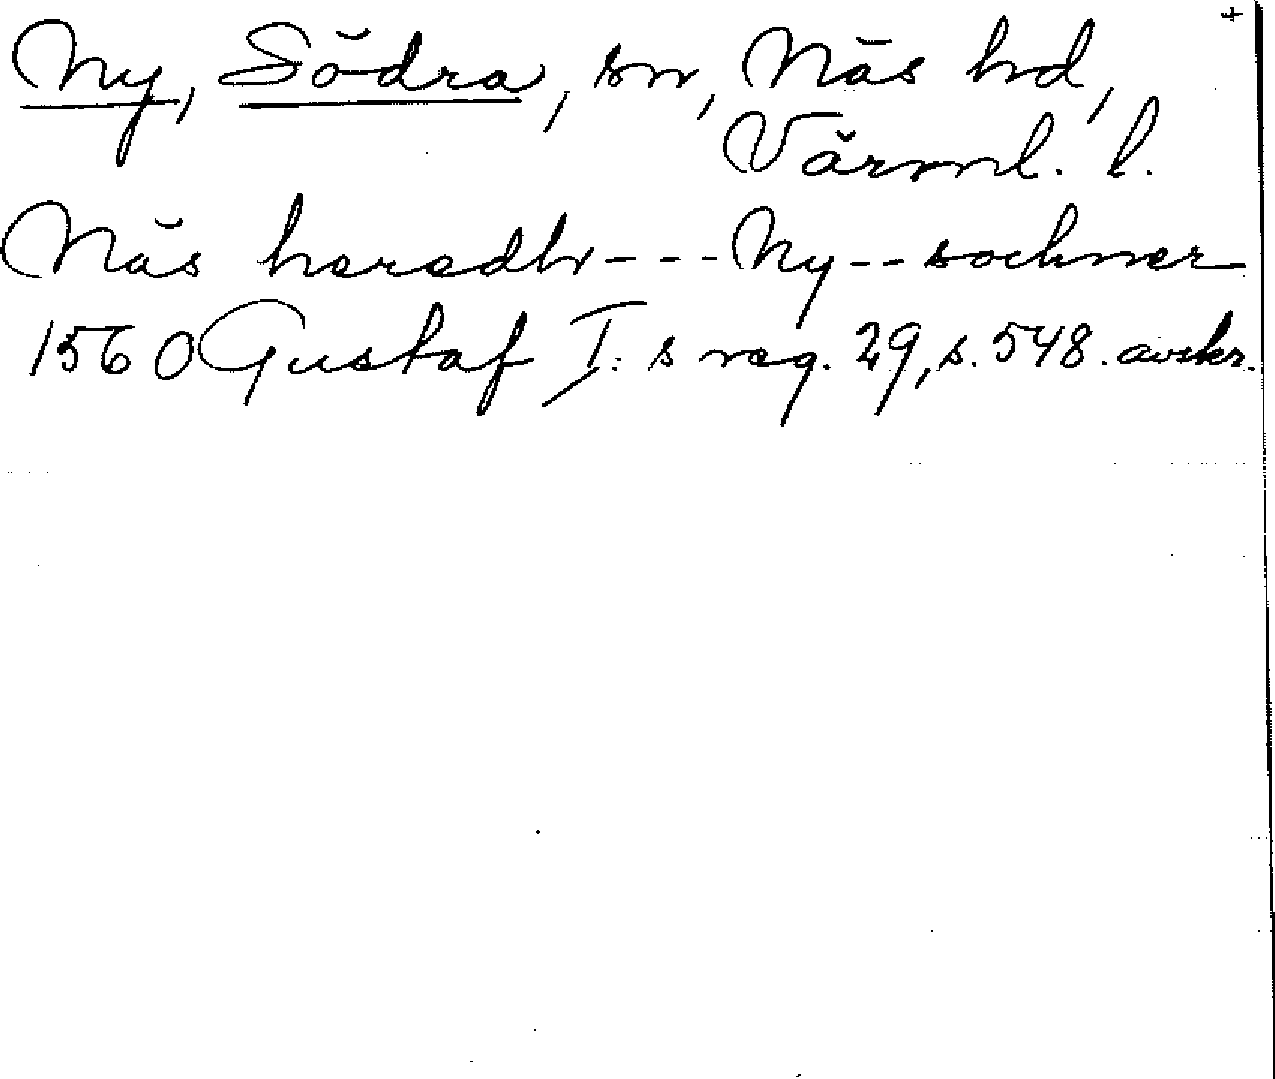 Ny, Södra, sn, Näs hd,
Värml. l.
Näs heredh --- Ny -- sochner
1560 Gustaf I:s reg. 29, s. 548. avskr.